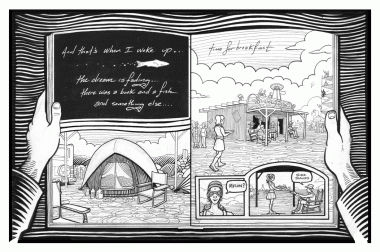 And that's when I woke up...
the dream is fading...
there was a book and a fish
and something else...
time for breakfast